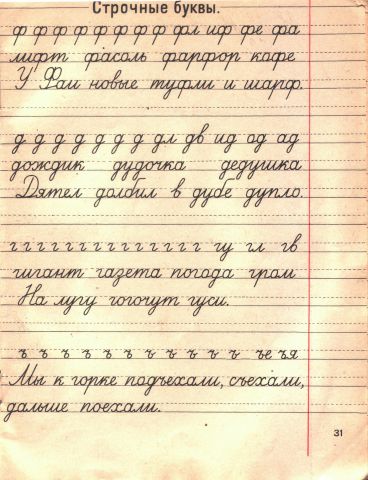 Строчные буквы.
ф ф ф ф ф ф ф ф фл иф фе фа
лифт фасоль фарфор кафе
У Фаи новые туфли и шарф.
д д д д д д д дл дв ид од ад
дождик дудочка дедушка
Дятел долбил в дубе дупло.
г г г г г г г г г г г г гу гл гв
гигант газета погода гром
На лугу гогочут гуси.
ъ ъ ъ ъ ъ ъ ъ ъ ъ ъ ъ ъе ъя
Мы к горке подъехали, съехали,
дальше поехали.
31